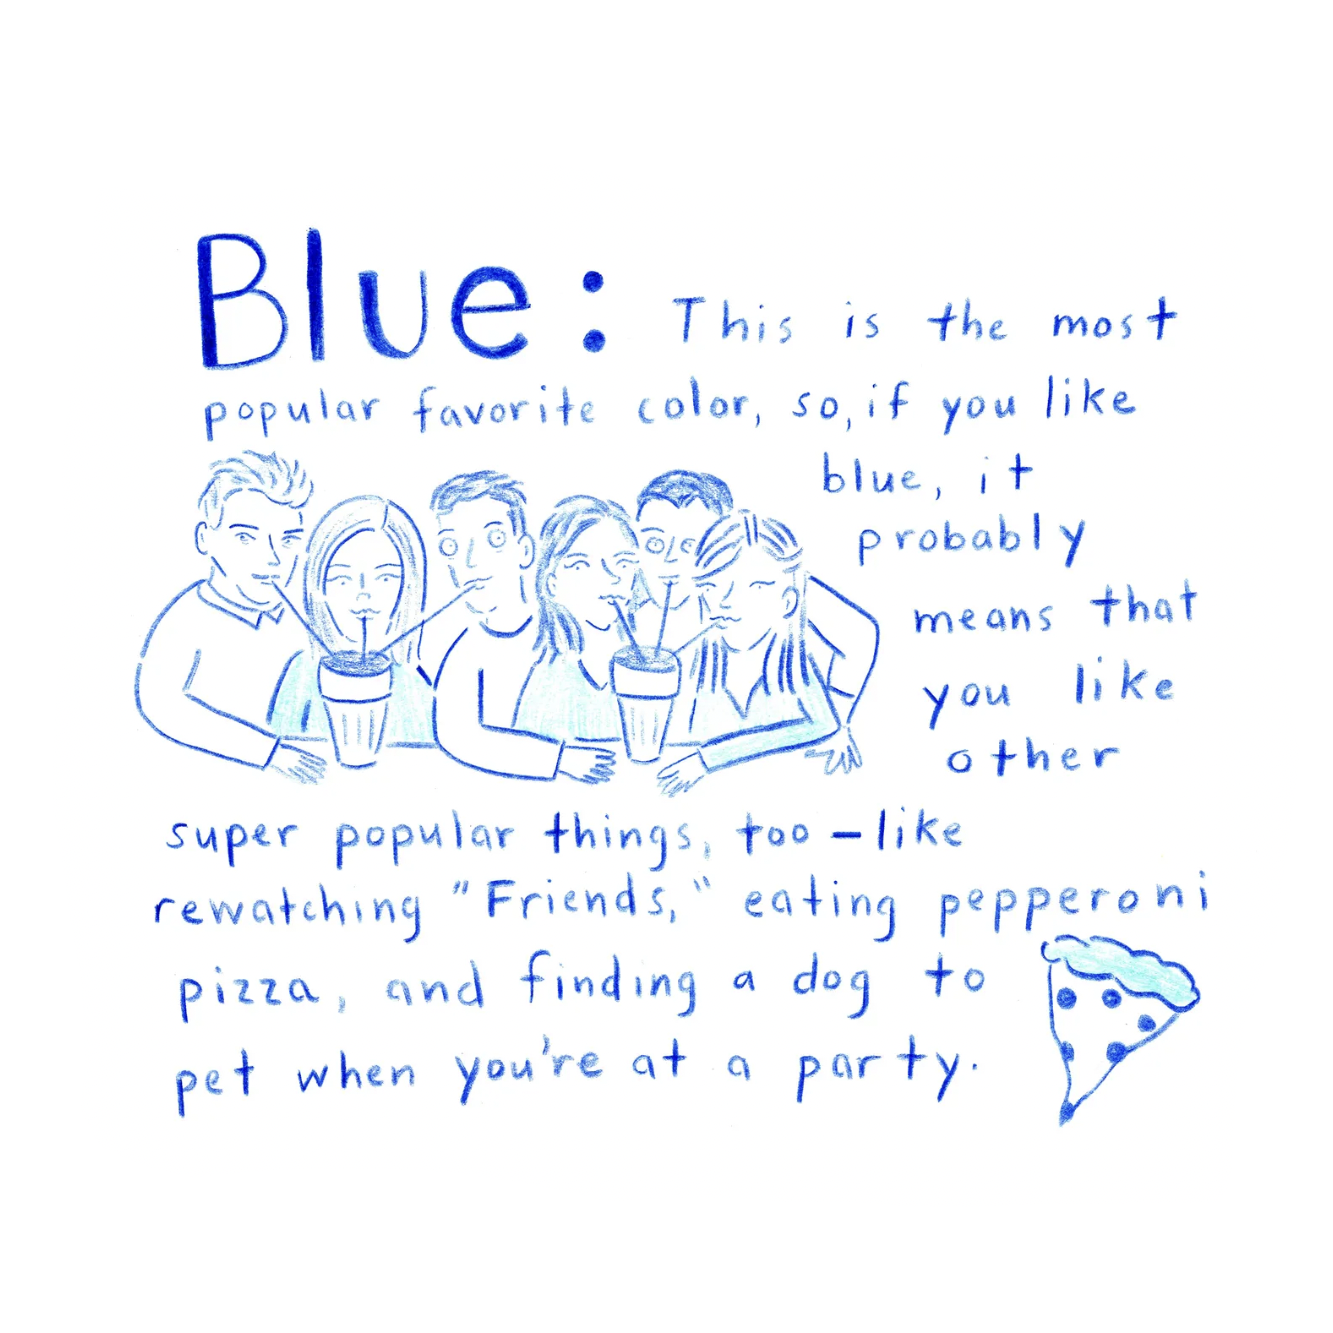 Blue: This is the most
popular favorite color, so, if you like
blue, it
probably
means that
you like
other
super popular things, too – like
rewatching "Friends," eating pepperoni
pizza, and finding a dog to
pet when you're at a party.